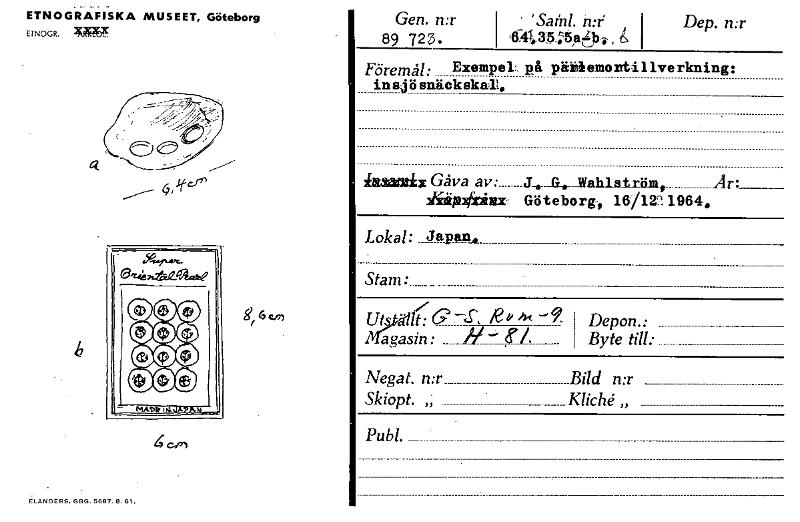 ETNOGRAFISKA MUSEET, Göteborg
ETNOGR.
a
6,4 cm
Super
Oriental Pearl
MADE IN JAPAN
b
8,6 cm
6 cm
ELANDERS, GBG. 5687. 8. 61.
Gen. n:r
89 723.
Saml. n:r
64.35.5a-b.
Dep. n:r
Föremål: Exempel på pärlemortillverkning:
insjösnäckskal.
Gåva av: J. G. Wahlström, År:
Göteborg, 16/12 1964.
Lokal: Japan.
Stam:
Utställt: G-S. Rum-9. Depon.:
Magasin: H-81. Byte till:
Negat. n:r Bild n:r
Skiopt. „ Kliché „
Publ.